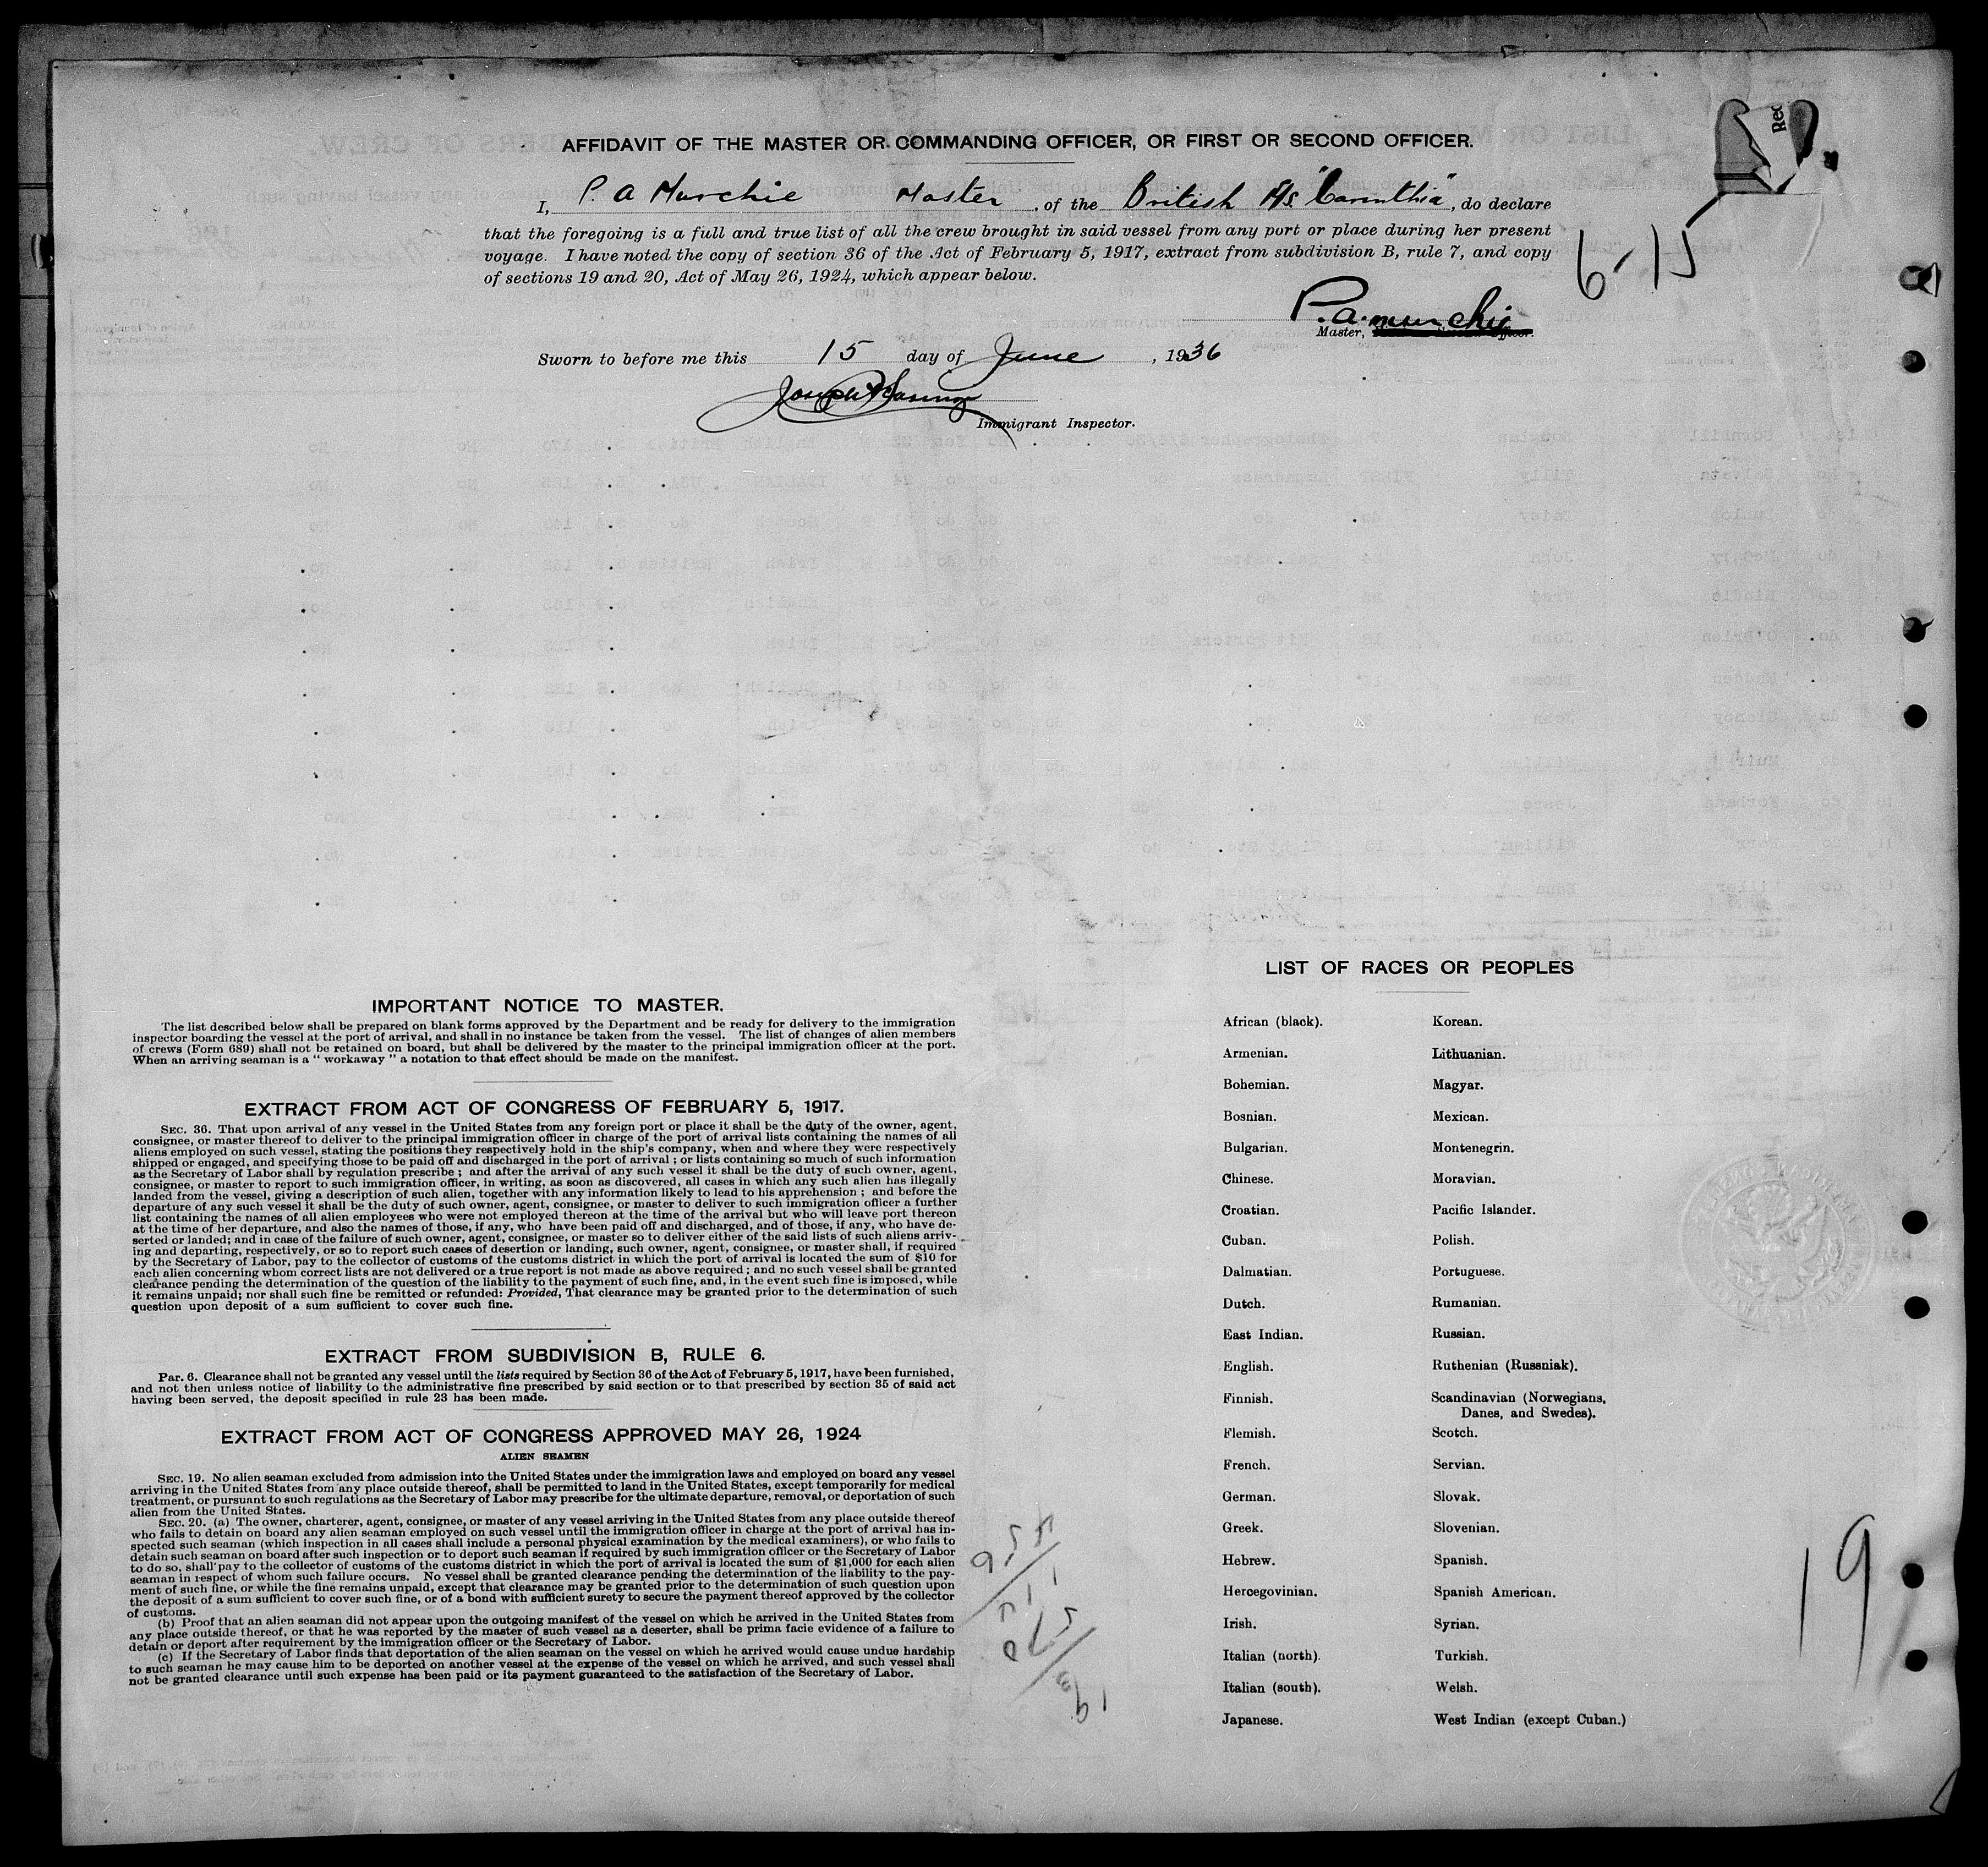 AFFIDAVIT OF THE MASTER OR COMMANDING OFFICER, OR FIRST OR SECOND OFFICER.
I, P. A Murchie Master, of the British S/s. "Carinthia", do declare
that the foregoing is a full and true list of all the crew brought in said vessel from any port or place during her present
voyage. I have noted the copy of section 36 of the Act of February 5, 1917, extract from subdivision B, rule 7, and copy
of sections 19 and 20, Act of May 26, 1924, which appear below.
6-15
P. A. Murchie
Master,
Sworn to before me this 15 day of June, 1936
Immigrant Inspector.
IMPORTANT NOTICE TO MASTER.
The list described below shall be prepared on blank forms approved by the Department and be ready for delivery to the immigration
inspector boarding the vessel at the port of arrival, and shall in no instance be taken from the vessel. The list of changes of alien members
of crews (Form 689) shall not be retained on board, but shall be delivered by the master to the principal immigration officer at the port.
When an arriving seaman is a " workaway " a notation to that effect should be made on the manifest.
EXTRACT FROM ACT OF CONGRESS OF FEBRUARY 5, 1917.
SEC. 36. That upon arrival of any vessel in the United States from any foreign port or place it shall be the duty of the owner, agent,
consignee, or master thereof to deliver to the principal immigration officer in charge of the port of arrival lists containing the names of all
aliens employed on such vessel, stating the positions they respectively hold in the ship's company, when and where they were respectively
shipped or engaged, and specifying those to be paid off and discharged in the port of arrival ; or lists containing so much of such information
as the Secretary of Labor shall by regulation prescribe ; and after the arrival of any such vessel it shall be the duty of such owner, agent,
consignee, or master to report to such immigration officer, in writing, as soon as discovered, all cases in which any such alien has illegally
landed from the vessel, giving a description of such alien, together with any information likely to lead to his apprehension ; and before the
departure of any such vessel it shall be the duty of such owner, agent, consignee, or master to deliver to such immigration officer a further
list containing the names of all alien employees who were not employed thereon at the time of the arrival but who will leave port thereon
at the time of her departure, and also the names of those, if any, who have been paid off and discharged, and of those, if any, who have de-
serted or landed; and in case of the failure of such owner, agent, consignee, or master so to deliver either of the said lists of such aliens arriv-
ing and departing, respectively, or so to report such cases of desertion or landing, such owner, agent, consignee, or master shall, if required
by the Secretary of Labor, pay to the collector of customs of the customs district in which the port of arrival is located the sum of $10 for
each alien concerning whom correct lists are not delivered or a true report is not made as above required ; and no such vessel shall be granted
clearance pending the determination of the question of the liability to the payment of such fine, and, in the event such fine is imposed, while
it remains unpaid; nor shall such fine be remitted or refunded: Provided, That clearance may be granted prior to the determination of such
question upon deposit of a sum sufficient to cover such fine.
EXTRACT FROM SUBDIVISION B, RULE 6.
Par. 6. Clearance shall not be granted any vessel until the lists required by Section 36 of the Act of February 5, 1917, have been furnished,
and not then unless notice of liability to the administrative fine prescribed by said section or to that prescribed by section 35 of said act
having been served, the deposit specified in rule 23 has been made.
EXTRACT FROM ACT OF CONGRESS APPROVED MAY 26, 1924
ALIEN SEAMEN
SEC. 19. No alien seaman excluded from admission into the United States under the immigration laws and employed on board any vessel
arriving in the United States from any place outside thereof, shall be permitted to land in the United States, except temporarily for medical
treatment, or pursuant to such regulations as the Secretary of Labor may prescribe for the ultimate departure, removal, or deportation of such
alien from the United States.
SEC. 20. (a) The owner, charterer, agent, consignee, or master of any vessel arriving in the United States from any place outside thereof
who fails to detain on board any alien seaman employed on such vessel until the immigration officer in charge at the port of arrival has in-
spected such seaman (which inspection in all cases shall include a personal physical examination by the medical examiners), or who fails to
detain such seaman on board after such inspection or to deport such seaman if required by such immigration officer or the Secretary of Labor
to do so, shall pay to the collector of customs of the customs district in which the port of arrival is located the sum of $1,000 for each alien
seaman in respect of whom such failure occurs. No vessel shall be granted clearance pending the determination of the liability to the pay-
ment of such fine, or while the fine remains unpaid, except that clearance may be granted prior to the determination of such question upon
the deposit of a sum sufficient to cover such fine, or of a bond with sufficient surety to secure the payment thereof approved by the collector
of customs.
(b) Proof that an alien seaman did not appear upon the outgoing manifest of the vessel on which he arrived in the United States from
any place outside thereof, or that he was reported by the master of such vessel as a deserter, shall be prima facie evidence of a failure to
detain or deport after requirement by the immigration officer or the Secretary of Labor.
(c) If the Secretary of Labor finds that deportation of the alien seaman on the vessel on which he arrived would cause undue hardship
to such seaman he may cause him to be deported on another vessel at the expense of the vessel on which he arrived, and such vessel shall
not be granted clearance until such expense has been paid or its payment guaranteed to the satisfaction of the Secretary of Labor.
LIST OF RACES OR PEOPLES
African (black).
Armenian.
Bohemian.
Bosnian.
Bulgarian.
Chinese.
Croatian.
Cuban.
Dalmatian.
Dutch.
East Indian.
English.
Finnish.
Flemish.
French.
German.
Greek.
Hebrew.
Hercegovinian.
Irish.
Italian (north).
Italian (south).
Japanese.
Korean.
Lithuanian.
Magyar.
Mexican.
Montenegrin.
Moravian.
Pacific Islander.
Polish.
Portuguese.
Rumanian.
Russian.
Ruthenian (Russniak).
Scandinavian (Norwegians,
Danes, and Swedes).
Scotch.
Servian.
Slovak.
Slovenian.
Spanish.
Spanish American.
Syrian.
Turkish.
Welsh.
West Indian (except Cuban.)
19
Rec